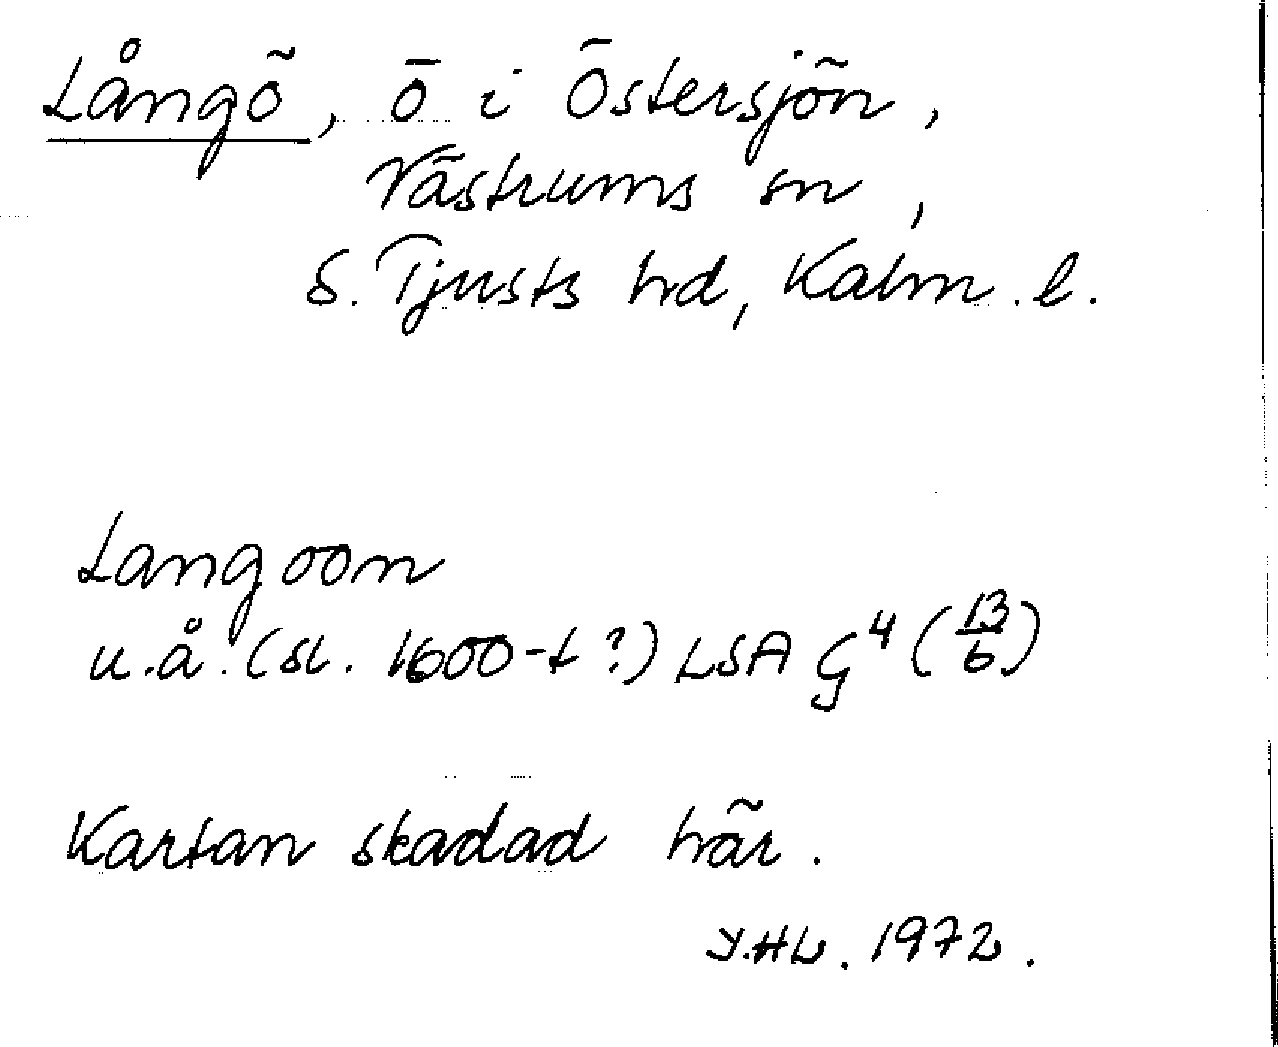 Långö, ö i Östersjön,
Västrums sn,
S. Tjusts hd, Kalm. l.
Langoon
u.å. (sl. 1600-t?) LSA G⁴ (13/6)
Kartan skadad här.
Y.HL. 1972.